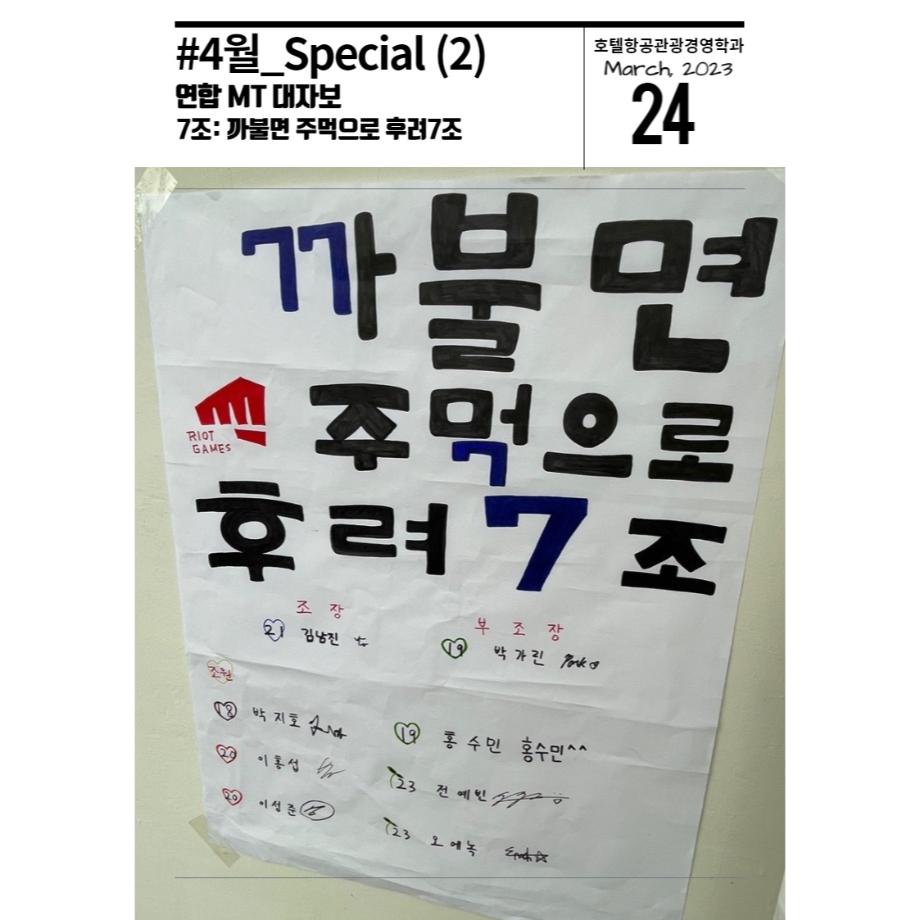 #4월_Special (2)
연합 MT 대자보
7조: 까불면 주먹으로 후려7조
호텔항공관광경영학과
March, 2023
24
까불면
RIOT
GAMES
주먹으로
후려7조
조장
21 김남진
부조장
19 박가린
조원
18 박지호
19 홍수민 홍수민^^
20 이홍섭
23 전예빈
20 이성준
23 오예녹